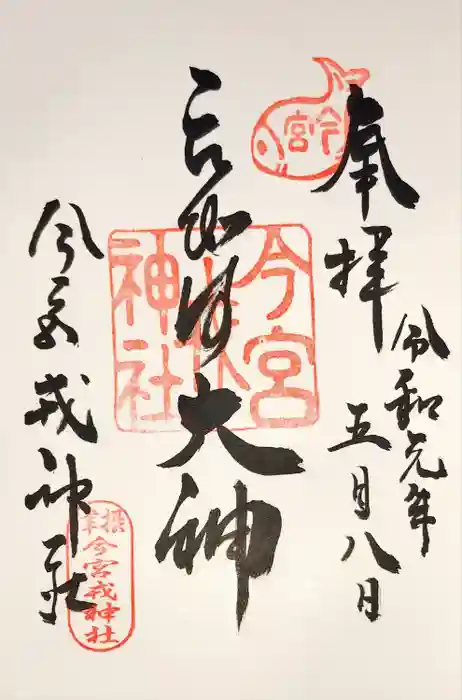 奉拝
令和元年
五月八日
大神
今宮戎神社
今宮
今宮戎神社
今宮戎神社